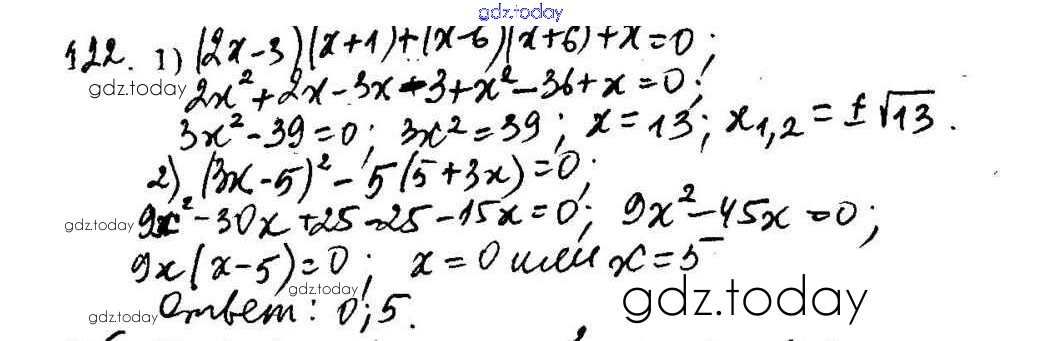 gdz.today
122. 1) (2x-3)(x+1)+(x-6)(x+6)+x=0;
gdz.today
2x²+2x-3x-3+x²-36+x=0;
3x²-39=0; 3x²=39; x=13; x1,2=±√13.
2) (3x-5)²-5(5+3x)=0;
gdz.today
9x²-30x+25-25-15x=0; 9x²-45x=0;
9x(x-5)=0; x=0 или x=5
gdz.today
gdz.today
gdz.today
Ответ: 0; 5.